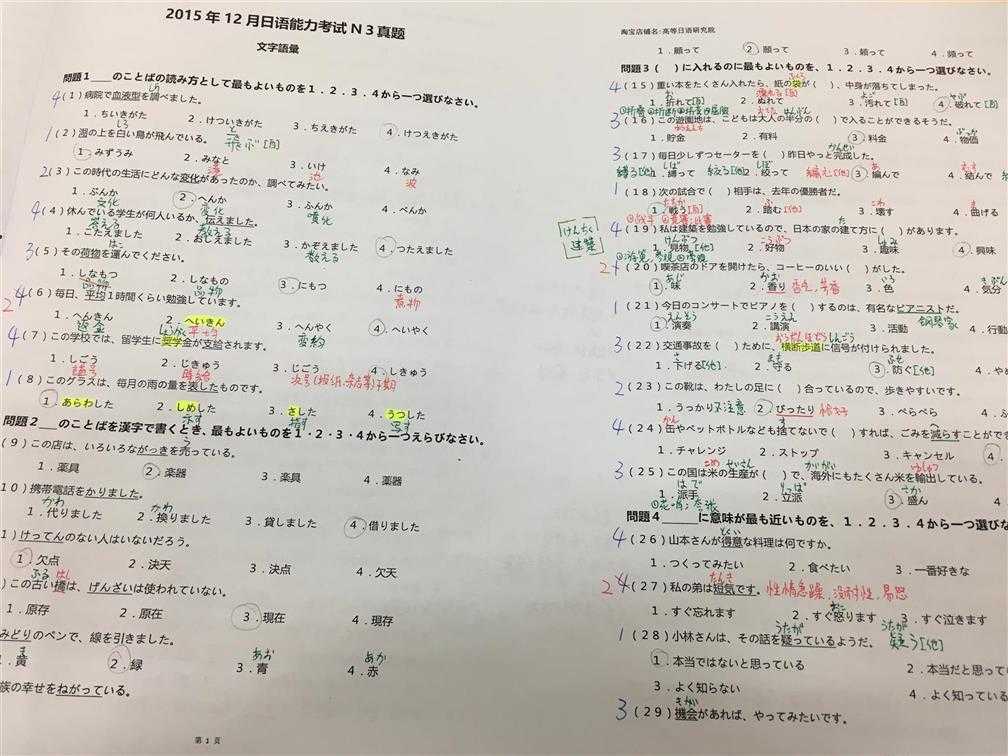 2015年12月日语能力考试N3真题
文字語彙
問題1＿＿のことばの読み方として最もよいものを1．2．3．4から一つ選びなさい。
4 (1) 病院で血液型を調べました。
1．ちいきがた 2．けついきがた 3．ちえきがた 4．けつえきがた
1 (2) 湖の上を白い鳥が飛んでいる。 飛ぶ[自]
1．みずうみ 2．みなと 3．いけ 4．なみ
港 池 波
2 (3) この時代の生活にどんな変化があったのか、調べてみたい。
1．ぶんか 2．へんか 3．ふんか 4．ぺんか
文化 変化 噴化
4 (4) 休んでいる学生が何人いるか、伝えました。
答える 教える
1．こたえました 2．おしえました 3．かぞえました 4．つたえました
数える
3 (5) その荷物を運んでください。
1．しなもつ 2．しなもの 3．にもつ 4．にもの
品物 煮物
2 4 (6) 毎日、平均1時間くらい勉強しています。
1．へんきん 2．へいきん 3．へんやく 4．へいやく
返金 平均 変約
4 (7) この学校では、留学生に奨学金が支給されます。
しょうがく
1．しごう 2．じきゅう 3．じごう 4．しきゅう
時給
1 (8) このグラスは、毎月の雨の量を表したものです。
1．あらわした 2．しめした 3．さした 4．うつした
示す 指す 写す
問題2＿＿のことばを漢字で書くとき、最もよいものを1・2・3・4から一つえらびなさい。
(9) この店は、いろいろながっきを売っている。
1．薬具 2．楽器 3．楽具 4．薬器
10) 携帯電話をかりました。
かわ かわ
1．代りました 2．換りました 3．貸しました 4．借りました
1) けってんのない人はいないだろう。
1．欠点 2．決天 3．決点 4．欠天
ふる はし
) この古い橋は、げんざいは使われていない。
1．原存 2．原在 3．現在 4．現存
みどりのペンで、線を引きました。
ま あお あか
1．黄 2．緑 3．青 4．赤
族の幸せをねがっている。
第 1 页
淘宝店铺名:高等日语研究院
1．願って 2．願って 3．頼って 4．頻って
問題3 ( ) に入れるのに最もよいものを、1．2．3．4から一つ選びなさい。
4 (15) 重い本をたくさん入れたら、紙の袋が( )、中身が落ちてしまった。
1．折れて[自] 2．ぬれて 3．汚れて[自] 4．破れて[自]
3 (16) この遊園地は、こどもは大人の半分の( )で入ることができるそうだ。
1．貯金 2．有料 3．料金 4．物価
3 (17) 毎日少しずつセーターを( )昨日やっと完成した。
縛る[他] 1．縛って 絞る[他] 2．絞って 編む[他] 3．編んで 4．結んで
1 (18) 次の試合で( )相手は、去年の優勝者だ。
1．戦う[自] 2．踏む[他] 3．壊す 4．曲げる
けんちく
建築
4 (19) 私は建築を勉強しているので、日本の家の建て方に( )があります。
1．見物[他] 2．好物 3．趣味 4．興味
2 (20) 喫茶店のドアを開けたら、コーヒーのいい( )がした。
1．味 2．香り 3．色 4．気分
1 (21) 今日のコンサートでピアノを( )するのは、有名なピアニストだ。
1．演奏 2．講演 3．活動 钢琴家 4．行動
3 (22) 交通事故を( )ために、横断歩道に信号が付けられました。
1．下げる[他] 2．守る 3．防ぐ[他] 4．や
2 (23) この靴は、わたしの足に( )合っているので、歩きやすいです。
1．うっかり 不注意 2．ぴったり 恰好 3．ぺらぺら 4．ふ
4 (24) 缶やペットボトルなども捨てないで( )すれば、ごみを減らすことがです
1．チャレンジ 2．ストップ 3．キャンセル 4．
3 (25) この国は米の生産が( )で、海外にもたくさん米を輸出している。
はで りっぱ さか
1．派手 2．立派 3．盛ん
問題4＿＿＿に意味が最も近いものを、1．2．3．4から一つ選びな
4 (26) 山本さんが得意な料理は何ですか。
1．つくってみたい 2．食べたい 3．一番好きな
2 4 (27) 私の弟は短気です。 性情急躁，没耐性，易怒
1．すぐ忘れます 2．すぐ怒ります 3．すぐ泣きます
1 (28) 小林さんは、その話を疑っているようだ。 疑う[他]
1．本当ではないと思っている 2．本当だと思って
3．よく知らない 4．よく知っている
3 (29) 機会があれば、やってみたいです。